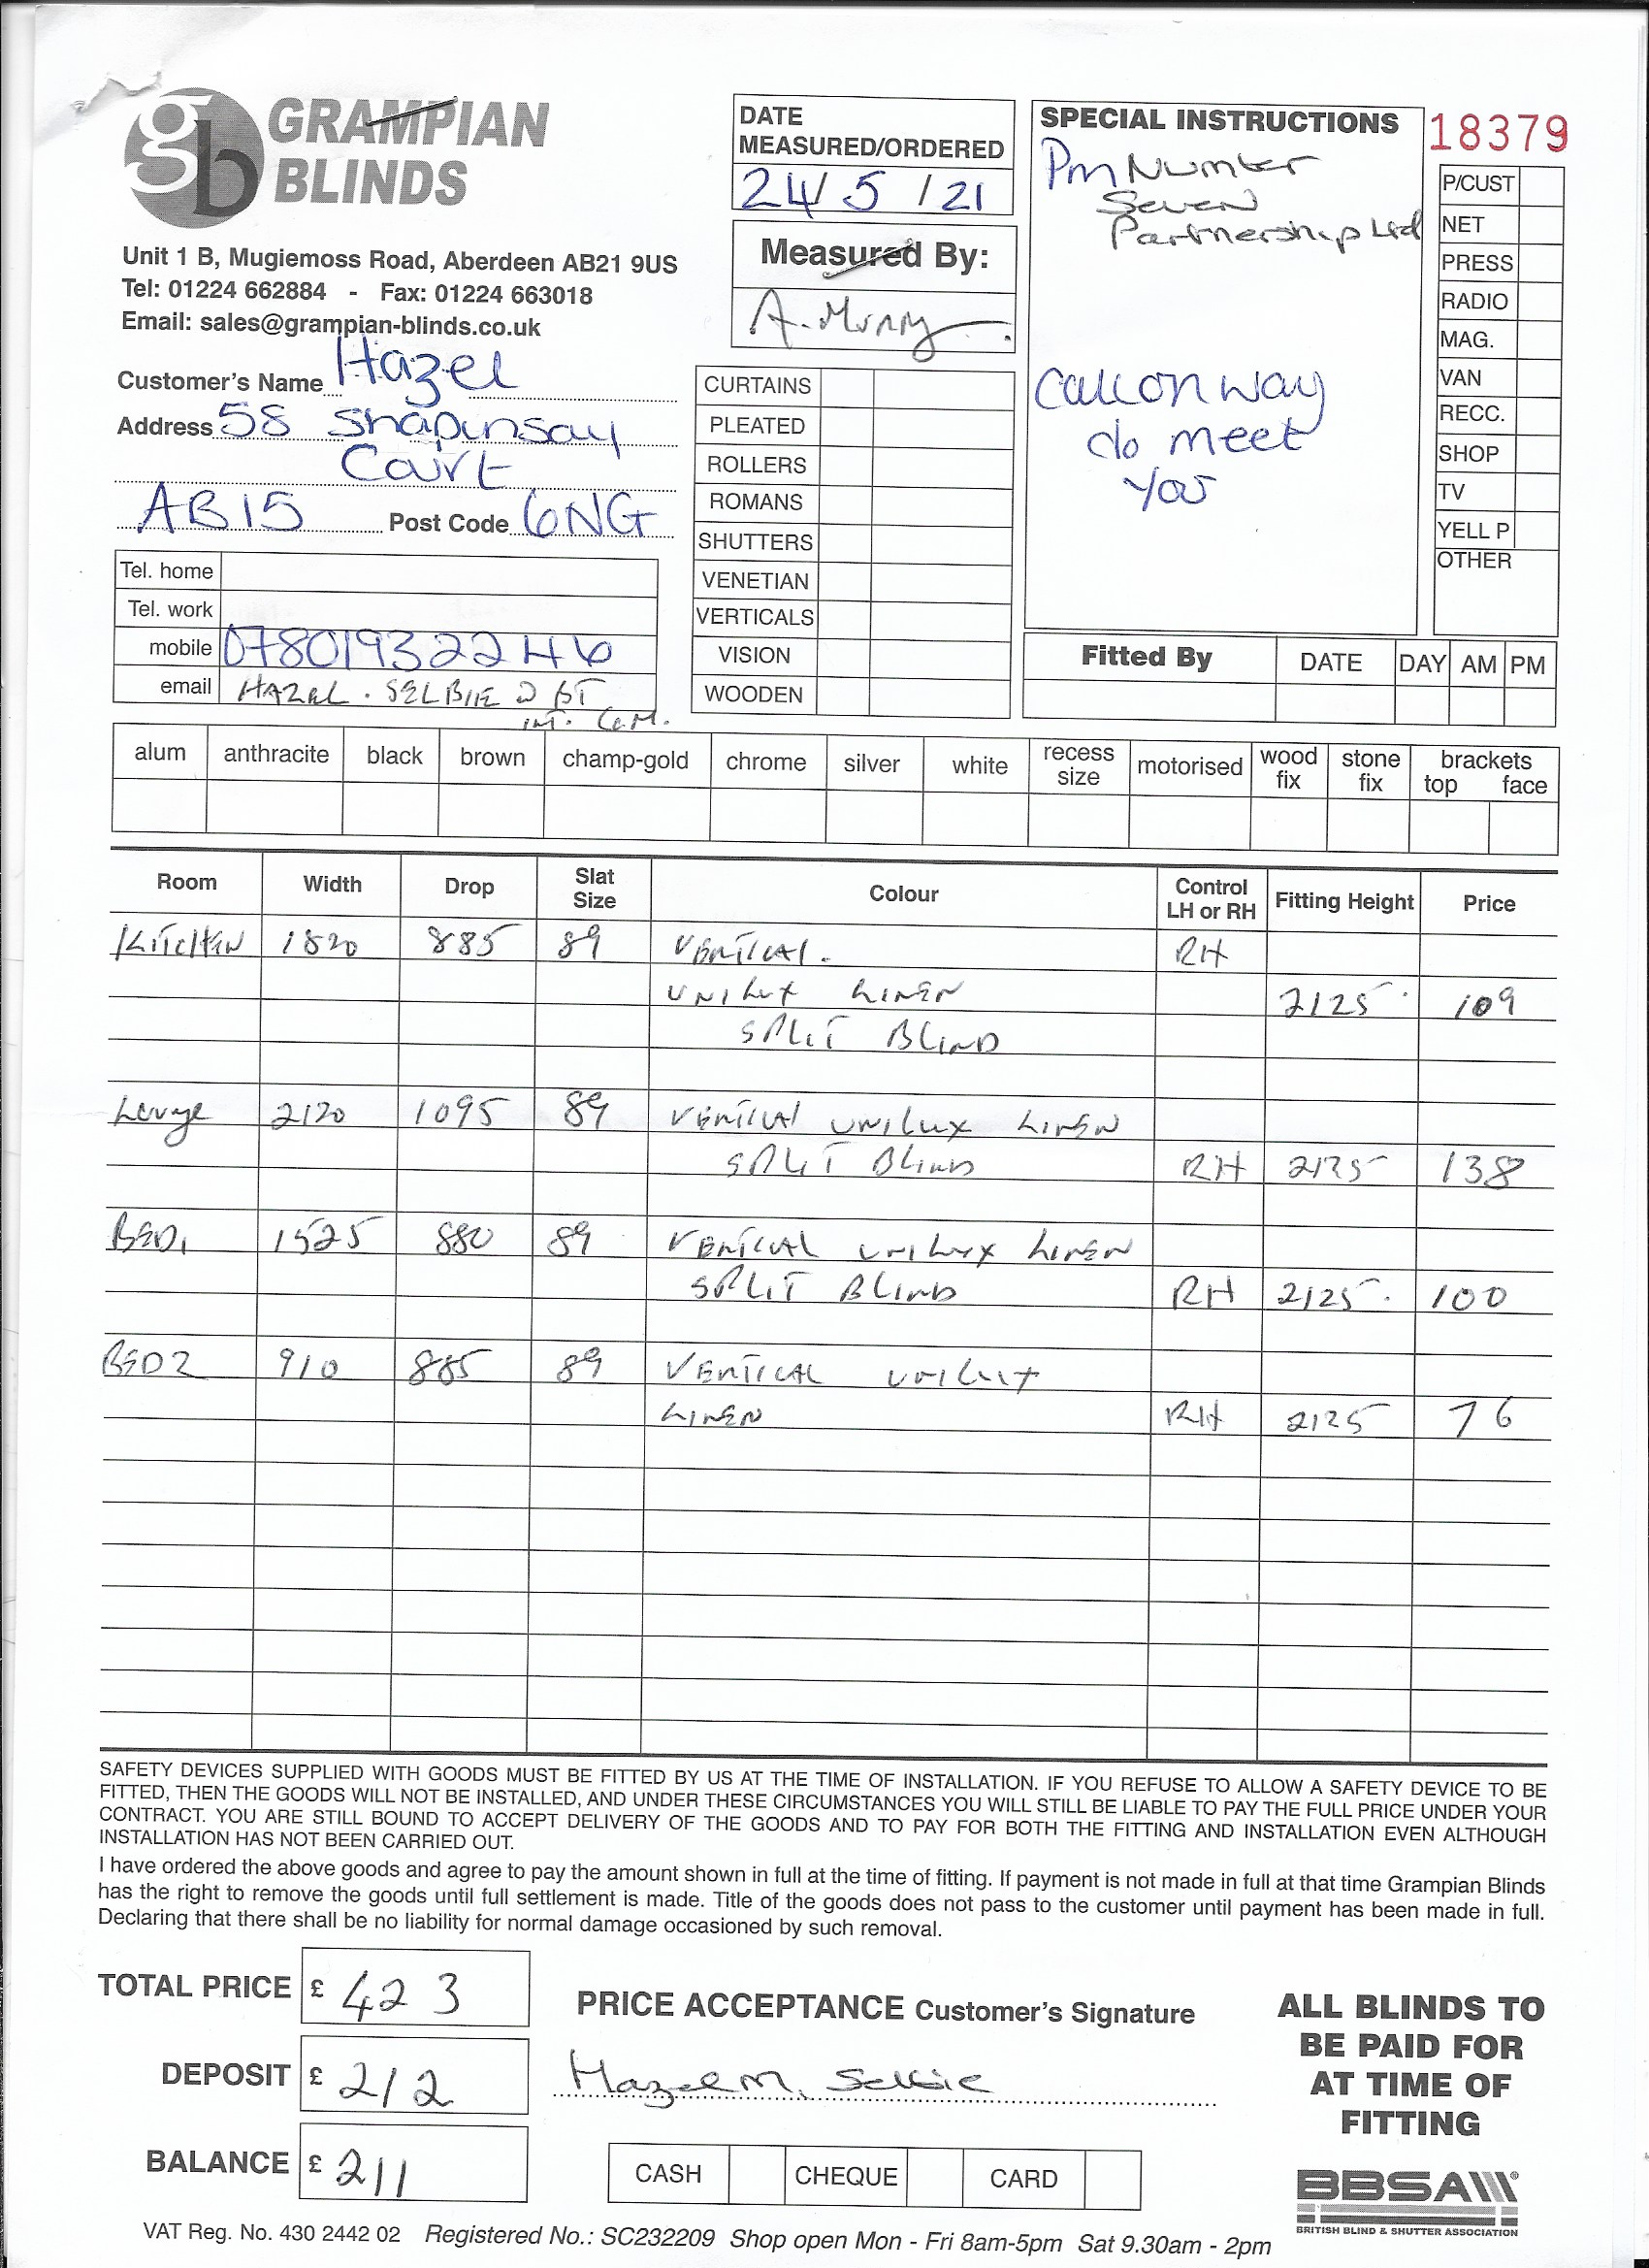 GRAMPIAN
BLINDS
Unit 1 B, Mugiemoss Road, Aberdeen AB21 9US
Tel: 01224 662884 - Fax: 01224 663018
Email: sales@grampian-blinds.co.uk
Customer's Name Hazel
Address 58 Shapinsay
Court
AB15 Post Code 6NG
Tel. home
Tel. work
mobile 07801932246
email HAZEL.SELBIE @ BT
INT. COM.
DATE
MEASURED/ORDERED
24/5/21
Measured By:
A. Murray
CURTAINS
PLEATED
ROLLERS
ROMANS
SHUTTERS
VENETIAN
VERTICALS
VISION
WOODEN
SPECIAL INSTRUCTIONS
Pm Number
Seven
Partnership Ltd
Call on way
do meet
you
18379
P/CUST
NET
PRESS
RADIO
MAG.
VAN
RECC.
SHOP
TV
YELL P
OTHER
Fitted By DATE DAY AM PM
alum anthracite black brown champ-gold chrome silver white recess size motorised wood fix stone fix brackets top face
Room Width Drop Slat Size Colour Control LH or RH Fitting Height Price
KITCHEN 1820 885 89 VERTICAL. RH
UNILUX LINEN 2125 109
SPLIT BLIND
Lounge 2120 1095 89 VERTICAL UNILUX LINEN
SPLIT BLIND RH 2125 138
BED1 1525 880 89 VERTICAL UNILUX LINEN
SPLIT BLIND RH 2125 100
BED2 910 885 89 VERTICAL UNILUX
LINEN RH 2125 76
SAFETY DEVICES SUPPLIED WITH GOODS MUST BE FITTED BY US AT THE TIME OF INSTALLATION. IF YOU REFUSE TO ALLOW A SAFETY DEVICE TO BE
FITTED, THEN THE GOODS WILL NOT BE INSTALLED, AND UNDER THESE CIRCUMSTANCES YOU WILL STILL BE LIABLE TO PAY THE FULL PRICE UNDER YOUR
CONTRACT. YOU ARE STILL BOUND TO ACCEPT DELIVERY OF THE GOODS AND TO PAY FOR BOTH THE FITTING AND INSTALLATION EVEN ALTHOUGH
INSTALLATION HAS NOT BEEN CARRIED OUT.
I have ordered the above goods and agree to pay the amount shown in full at the time of fitting. If payment is not made in full at that time Grampian Blinds
has the right to remove the goods until full settlement is made. Title of the goods does not pass to the customer until payment has been made in full.
Declaring that there shall be no liability for normal damage occasioned by such removal.
TOTAL PRICE £ 423
DEPOSIT £ 212
BALANCE £ 211
PRICE ACCEPTANCE Customer's Signature
Hazel M. Selbie
CASH CHEQUE CARD
ALL BLINDS TO
BE PAID FOR
AT TIME OF
FITTING
BBSA
BRITISH BLIND & SHUTTER ASSOCIATION
VAT Reg. No. 430 2442 02 Registered No.: SC232209 Shop open Mon - Fri 8am-5pm Sat 9.30am - 2pm